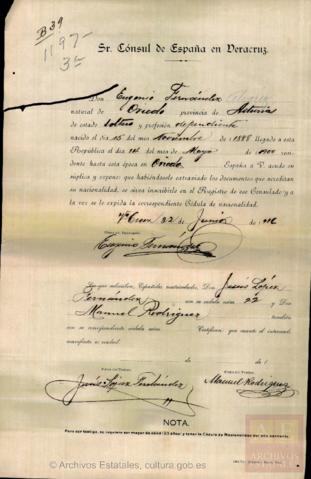 B 39
1197-
3ª
Sr. Cónsul de España en Veracruz.
Don Eugenio Fernández
natural de Oviedo provincia de Asturias
de estado soltero y profesión dependiente
nacido el día 15 del Noviembre de 1888 llegado a esta
República el día 14 del Mayo de
dente hasta esta época en Oviedo España a V. acude en
súplica y expone: que habiéndosele extraviado los documentos que acreditan
su nacionalidad, se sirva inscribirle en el Registro de ese Consulado y a
la vez se le expida la correspondiente Cédula de nacionalidad.
Vera Cruz 22 Junio
Eugenio Fernández
Los que subscriben, Españoles matriculados, Don Jesús López
Fernández con su cédula núm. 22 y Don
Manuel Rodríguez también
con su correspondiente cédula núm. Certifican que cuanto el interesado
manifiesta es verdad.
de de 1
Jesús López Fernández
Manuel Rodríguez
NOTA.
Para ser testigo, se requiere ser mayor de edad: 23 años; y tener la Cédula de Nacionalidad del año corriente.
ARCHIVOS
© Archivos Estatales, cultura.gob.es